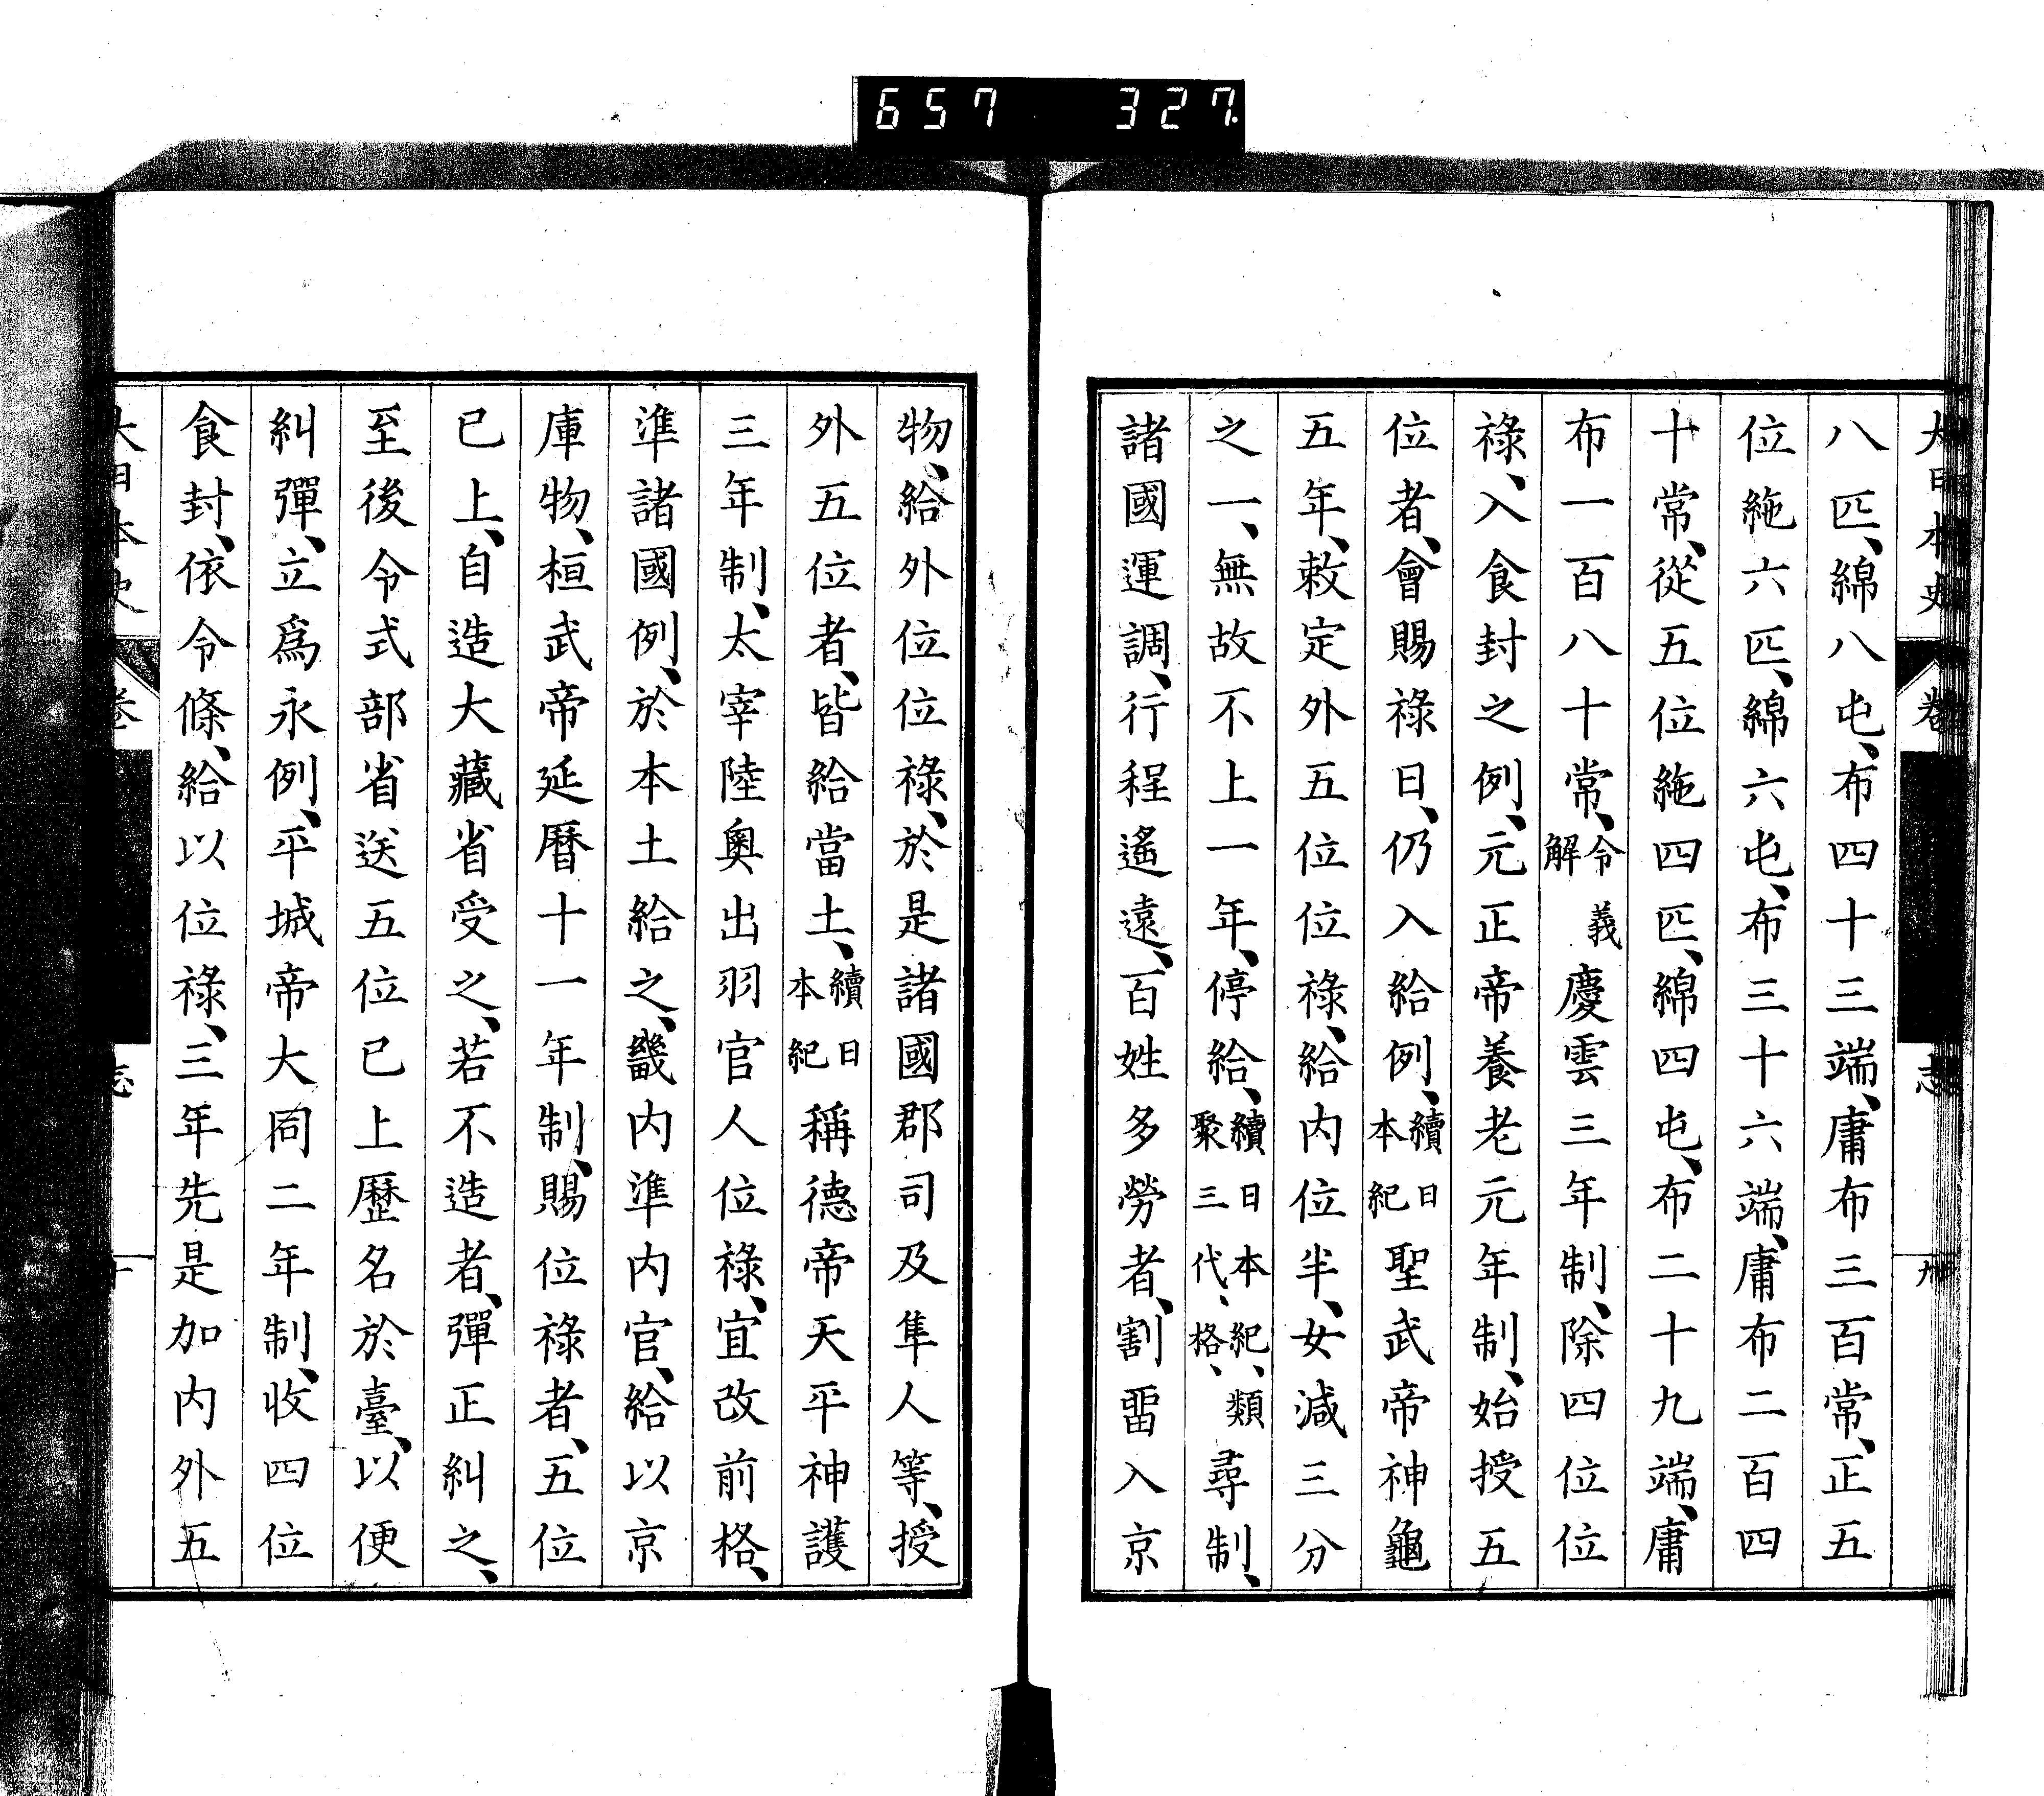 657 327
大日本史 卷 志
八匹、綿八屯、布四十三端、庸布三百常、正五
位絁六匹、綿六屯、布三十六端、庸布二百四
十常、從五位絁四匹、綿四屯、布二十九端、庸
布一百八十常、令義解慶雲三年制、除四位位
祿、入食封之例、元正帝養老元年制、始授五
位者、會賜祿日、仍入給例、續日本紀聖武帝神龜
五年、敕定外五位位祿、給內位半、女減三分
之一、無故不上一年、停給、續日本紀、類聚三代、格、尋制、
諸國運調、行程遙遠、百姓多勞者、割畱入京
物、給外位位祿、於是諸國郡司及隼人等、授
外五位者、皆給當土、續日本紀稱德帝天平神護
三年制、太宰陸奧出羽官人位祿、宜改前格、
準諸國例、於本土給之、畿內準內官、給以京
庫物、桓武帝延曆十一年制、賜位祿者、五位
已上、自造大藏省受之、若不造者、彈正糾之、
至後令式部省送五位已上歷名於臺、以便
糾彈、立爲永例、平城帝大同二年制、收四位
食封、依令條、給以位祿、三年先是加內外五
大日本史 卷 志